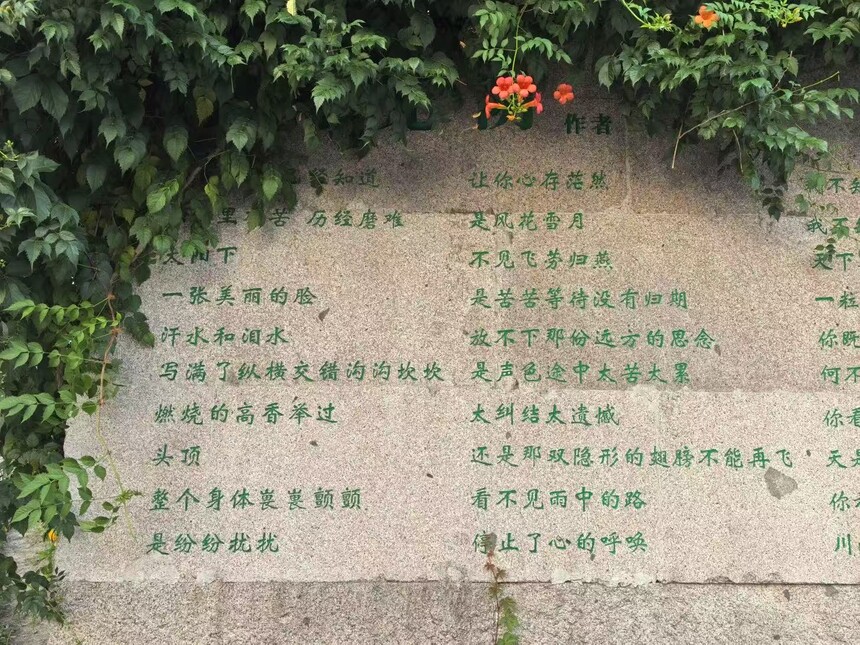 作者
知道
里 苦 历经磨难
太阳下
一张美丽的脸
汗水和泪水
写满了纵横交错沟沟坎坎
燃烧的高香举过
头顶
整个身体丧丧颤颤
是纷纷扰扰
让你心存茫然
是风花雪月
不见飞劳归燕
是苦苦等待没有归期
放不下那份远方的思念
是声色途中太苦太累
太纠结太遗憾
还是那双隐形的翅膀不能再飞
看不见雨中的路
停止了心的呼唤
不
我不
天下
一粒
你既
何不
你看
天是
你
川